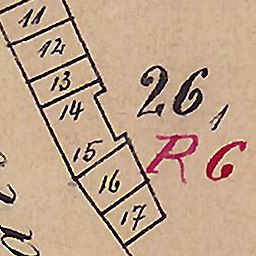 11
12
13
14
15
16
17
26,
R 6